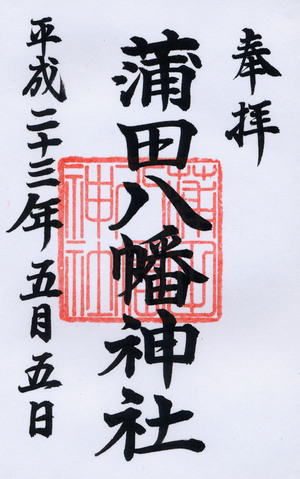 奉拝
蒲田八幡神社
平成二十三年五月五日
蒲田
八幡
神社